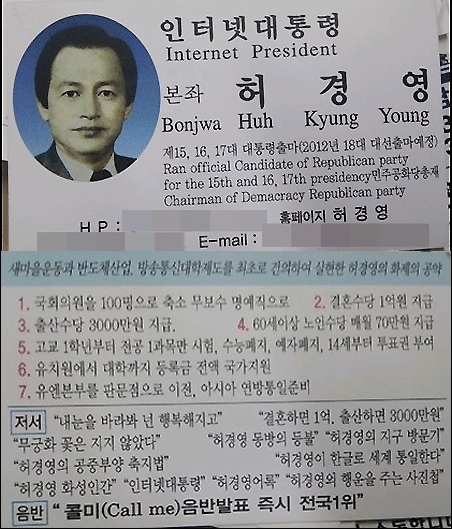 인터넷대통령
Internet President
본좌 허 경 영
Bonjwa Huh Kyung Young
제15, 16, 17대 대통령출마(2012년 18대 대선출마예정)
Ran official Candidate of Republican party
for the 15th and 16, 17th presidency민주공화당총재
Chairman of Demacracy Republican party
H P :
홈페이지 허 경 영
E-mail :
새마을운동과 반도체산업, 방송통신대학제도를 최초로 건의하여 실현한 허경영의 화제의 공약
1. 국회의원을 100명으로 축소 무보수 명예직으로 2. 결혼수당 1억원 지급
3. 출산수당 3000만원 지급. 4. 60세이상 노인수당 매월 70만원 지급
5. 고교 1학년부터 전공 1과목만 시험, 수능폐지, 예자폐지, 14세부터 투표권 부여
6. 유치원에서 대학까지 등록금 전액 국가지원
7. 유엔본부를 판문점으로 이전, 아시아 연방통일준비
저서 "내눈을 바라봐 넌 행복해지고" "결혼하면 1억, 출산하면 3000만원"
"무궁화 꽃은 지지 않았다" "허경영 동방의 등불" "허경영의 지구 방문기"
"허경영의 공중부양 축지법" "허경영이 한글로 세계 통일한다"
"허경영 화성인간" "인터넷대통령" "허경영어록" "허경영의 행운을 주는 사진첩"
음반 " 콜미(Call me)음반발표 즉시 전국1위"